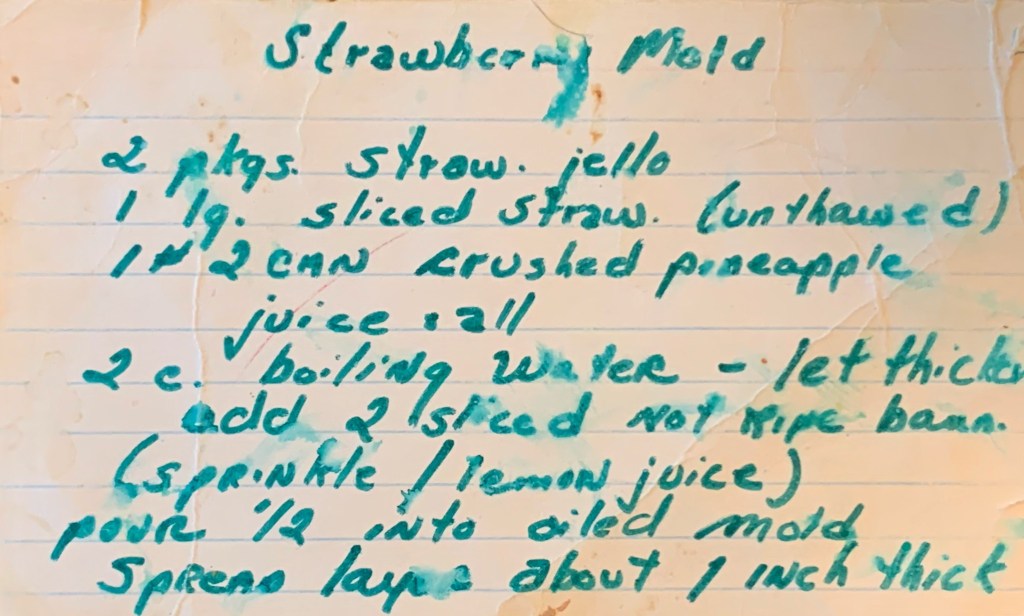 Strawberry Mold
2 pkgs. straw. jello
1 lg. sliced straw. (unthawed)
1 # 2 can crushed pineapple
juice & all
2 c. boiling water - let thicken
add 2 sliced not ripe bann.
(sprinkle / lemon juice)
pour 1/2 into oiled mold
Spread layer about 1 inch thick